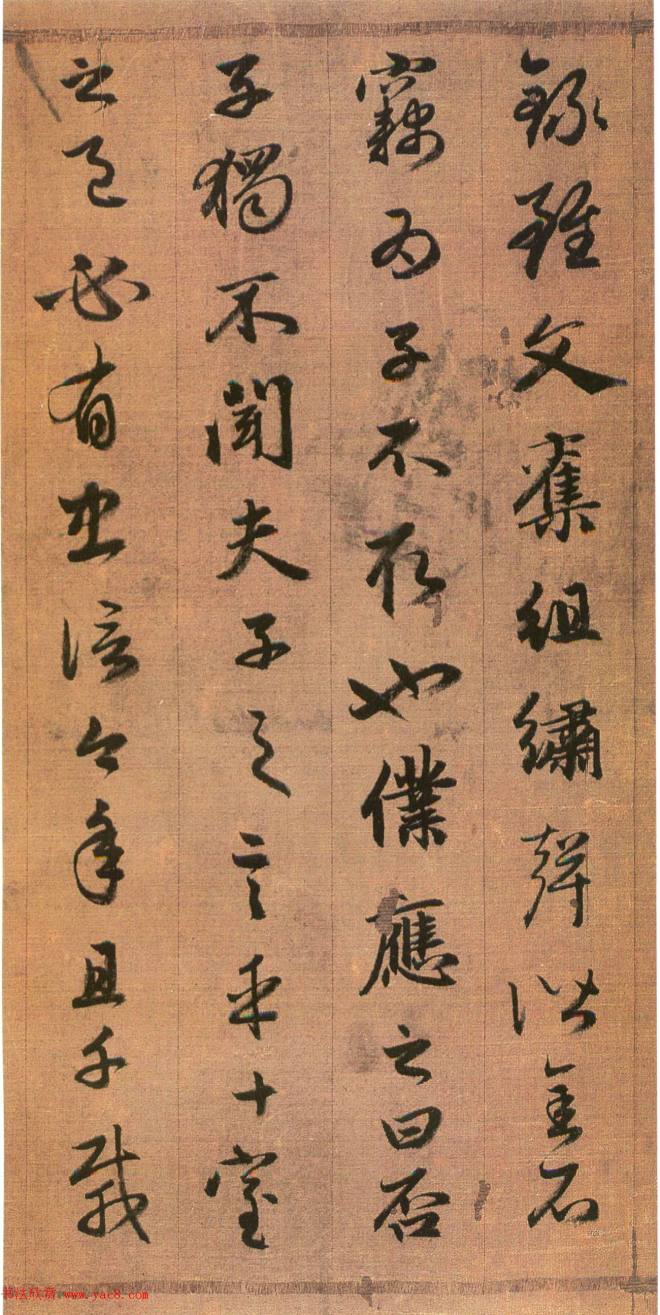 錄雖文奪組繡聲諧金石
竊為子不取也僕應之曰否
子獨不聞夫子之言乎十室
之邑必有忠信今年且千載
书法欣赏 www.yac8.com